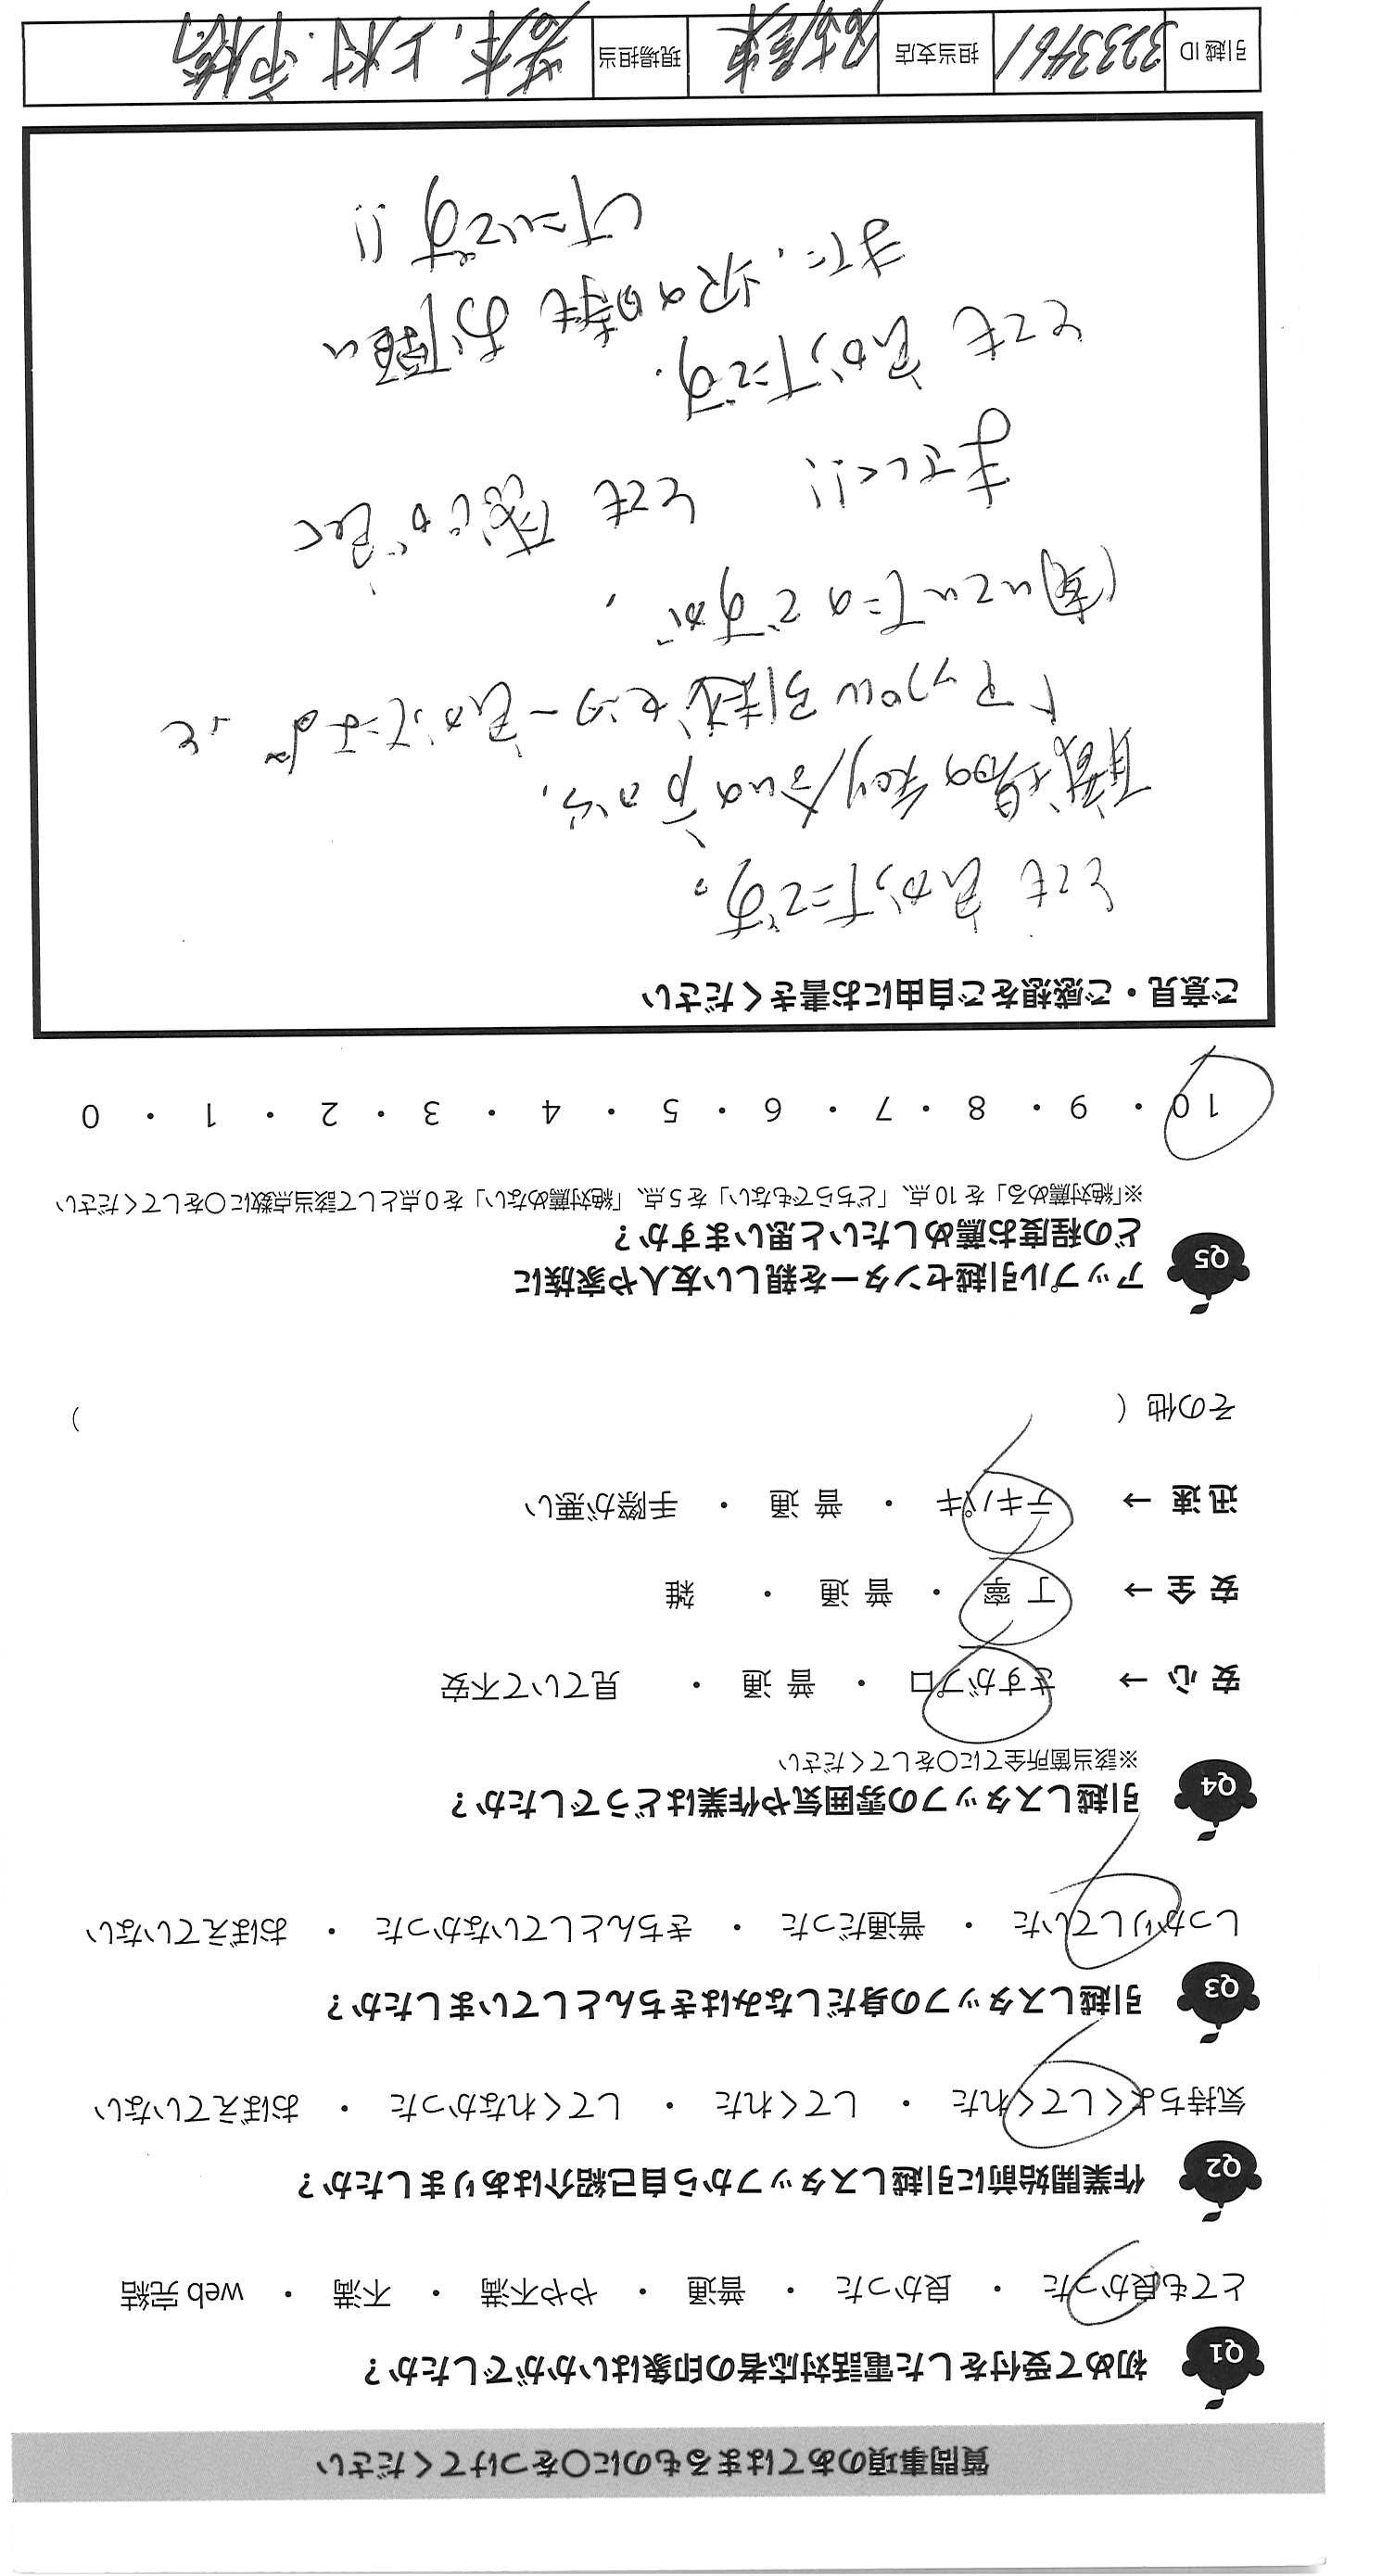 質問事項のあてはまるものに〇をつけてください
Q1 初めて受付をした電話対応者の印象はいかがでしたか？
とても良かった ・ 良かった ・ 普通 ・ やや不満 ・ 不満 ・ web 完結
Q2 作業開始前に引越しスタッフから自己紹介はありましたか？
気持ちよくしてくれた ・ してくれた ・ してくれなかった ・ おぼえていない
Q3 引越しスタッフの身だしなみはきちんとしていましたか？
しっかりしていた ・ 普通だった ・ きちんとしていなかった ・ おぼえていない
Q4 引越しスタッフの雰囲気や作業はどうでしたか？
※該当箇所全てに〇をしてください
安 心 → さすがプロ ・ 普 通 ・ 見ていて不安
安 全 → 丁 寧 ・ 普 通 ・ 雑
迅 速 → テキパキ ・ 普 通 ・ 手際が悪い
その他（ ）
Q5 アップル引越センターを親しい友人や家族に
どの程度お薦めしたいと思いますか？
※「絶対薦める」を 10 点、「どちらでもない」を 5 点、「絶対薦めない」を 0 点として該当点数に〇をしてください
10 ・ 9 ・ 8 ・ 7 ・ 6 ・ 5 ・ 4 ・ 3 ・ 2 ・ 1 ・ 0
ご意見・ご感想をご自由にお書きください
とても良かったです。
職場の知り合いの方から、
アップル引越センター良かったよ と
聞いていたのですが、
まさしく!! とても感じが良く
とても良かったです。
また、次の時もお願い
したいです!!
引越 ID 3233461 担当支店 名古屋東 現場担当 上村.